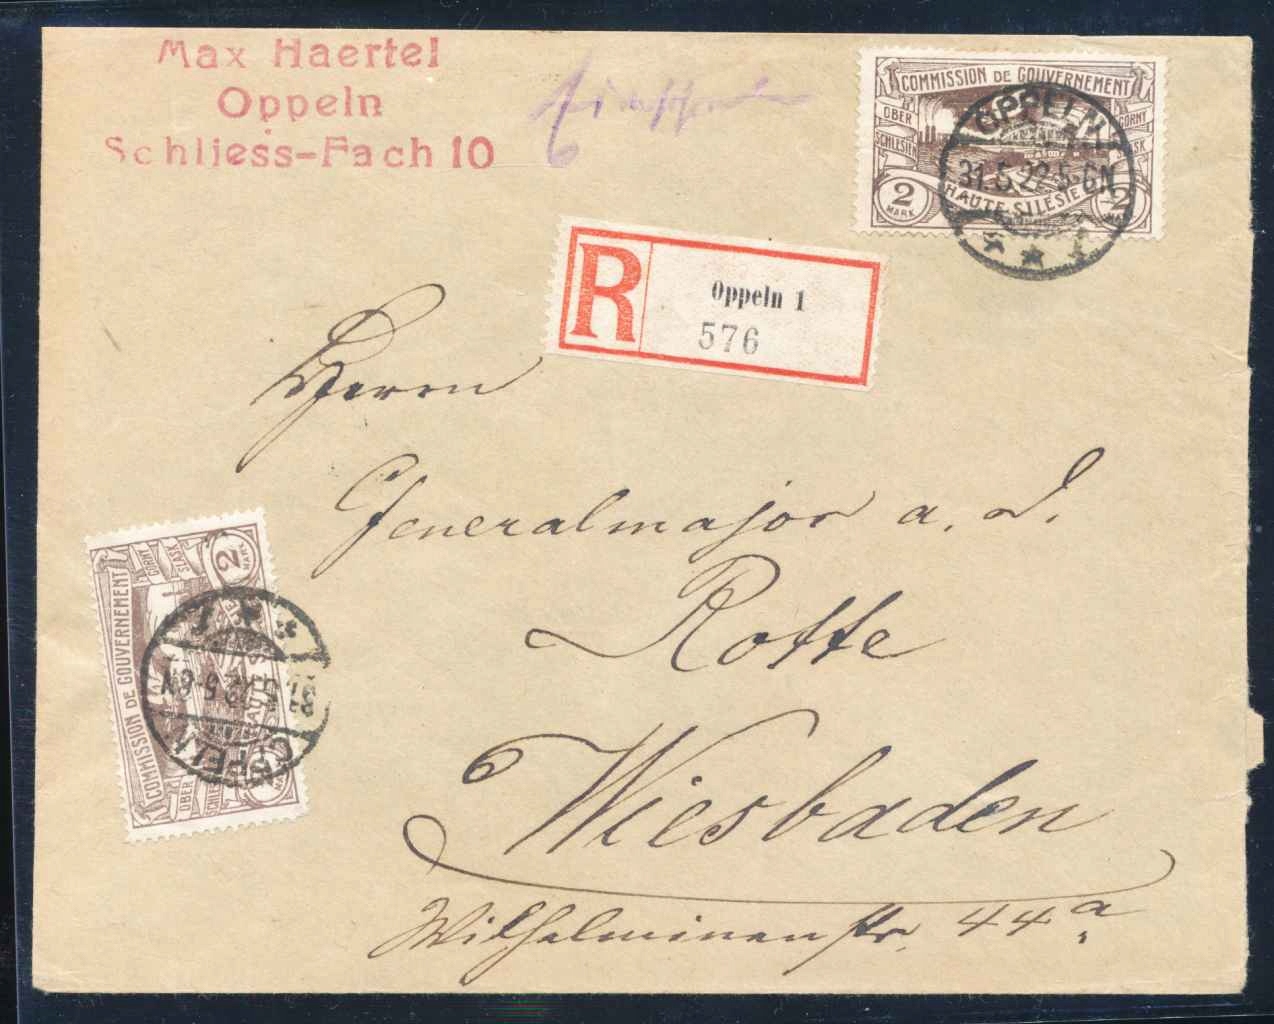 Max Haertel
Oppeln
Schliess-Fach 10
Einschreiben
COMMISSION DE GOUVERNEMENT
OBER SCHLESIEN
GORNY SLASK
HAUTE-SILESIE
2 MARK
2 MARK
OPPELN
31.5.22.5-6N
* 1
R
Oppeln 1
576
Herrn
Generalmajor a. D.
Rotte
Wiesbaden
Wilhelminenstr. 44a
COMMISSION DE GOUVERNEMENT
OBER SCHLESIEN
GORNY SLASK
HAUTE-SILESIE
2 MARK
OPPELN
31.5.22.5-6N
* 1